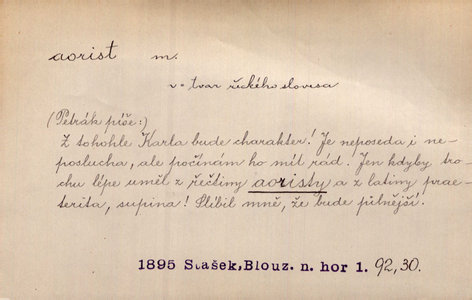 aorist m.
v= tvar řeckého slovesa
(Petrák píše:)
Z tohohle Karla bude charakter! Je neposeda i ne-
poslucha, ale počínám ho mít rád. Jen kdyby tro-
chu lépe uměl z řečtiny aoristy a z latiny prae-
terita, supina! Slíbil mně, že bude pilnější.
1895 Stašek, Blouz. n. hor 1. 92,30.